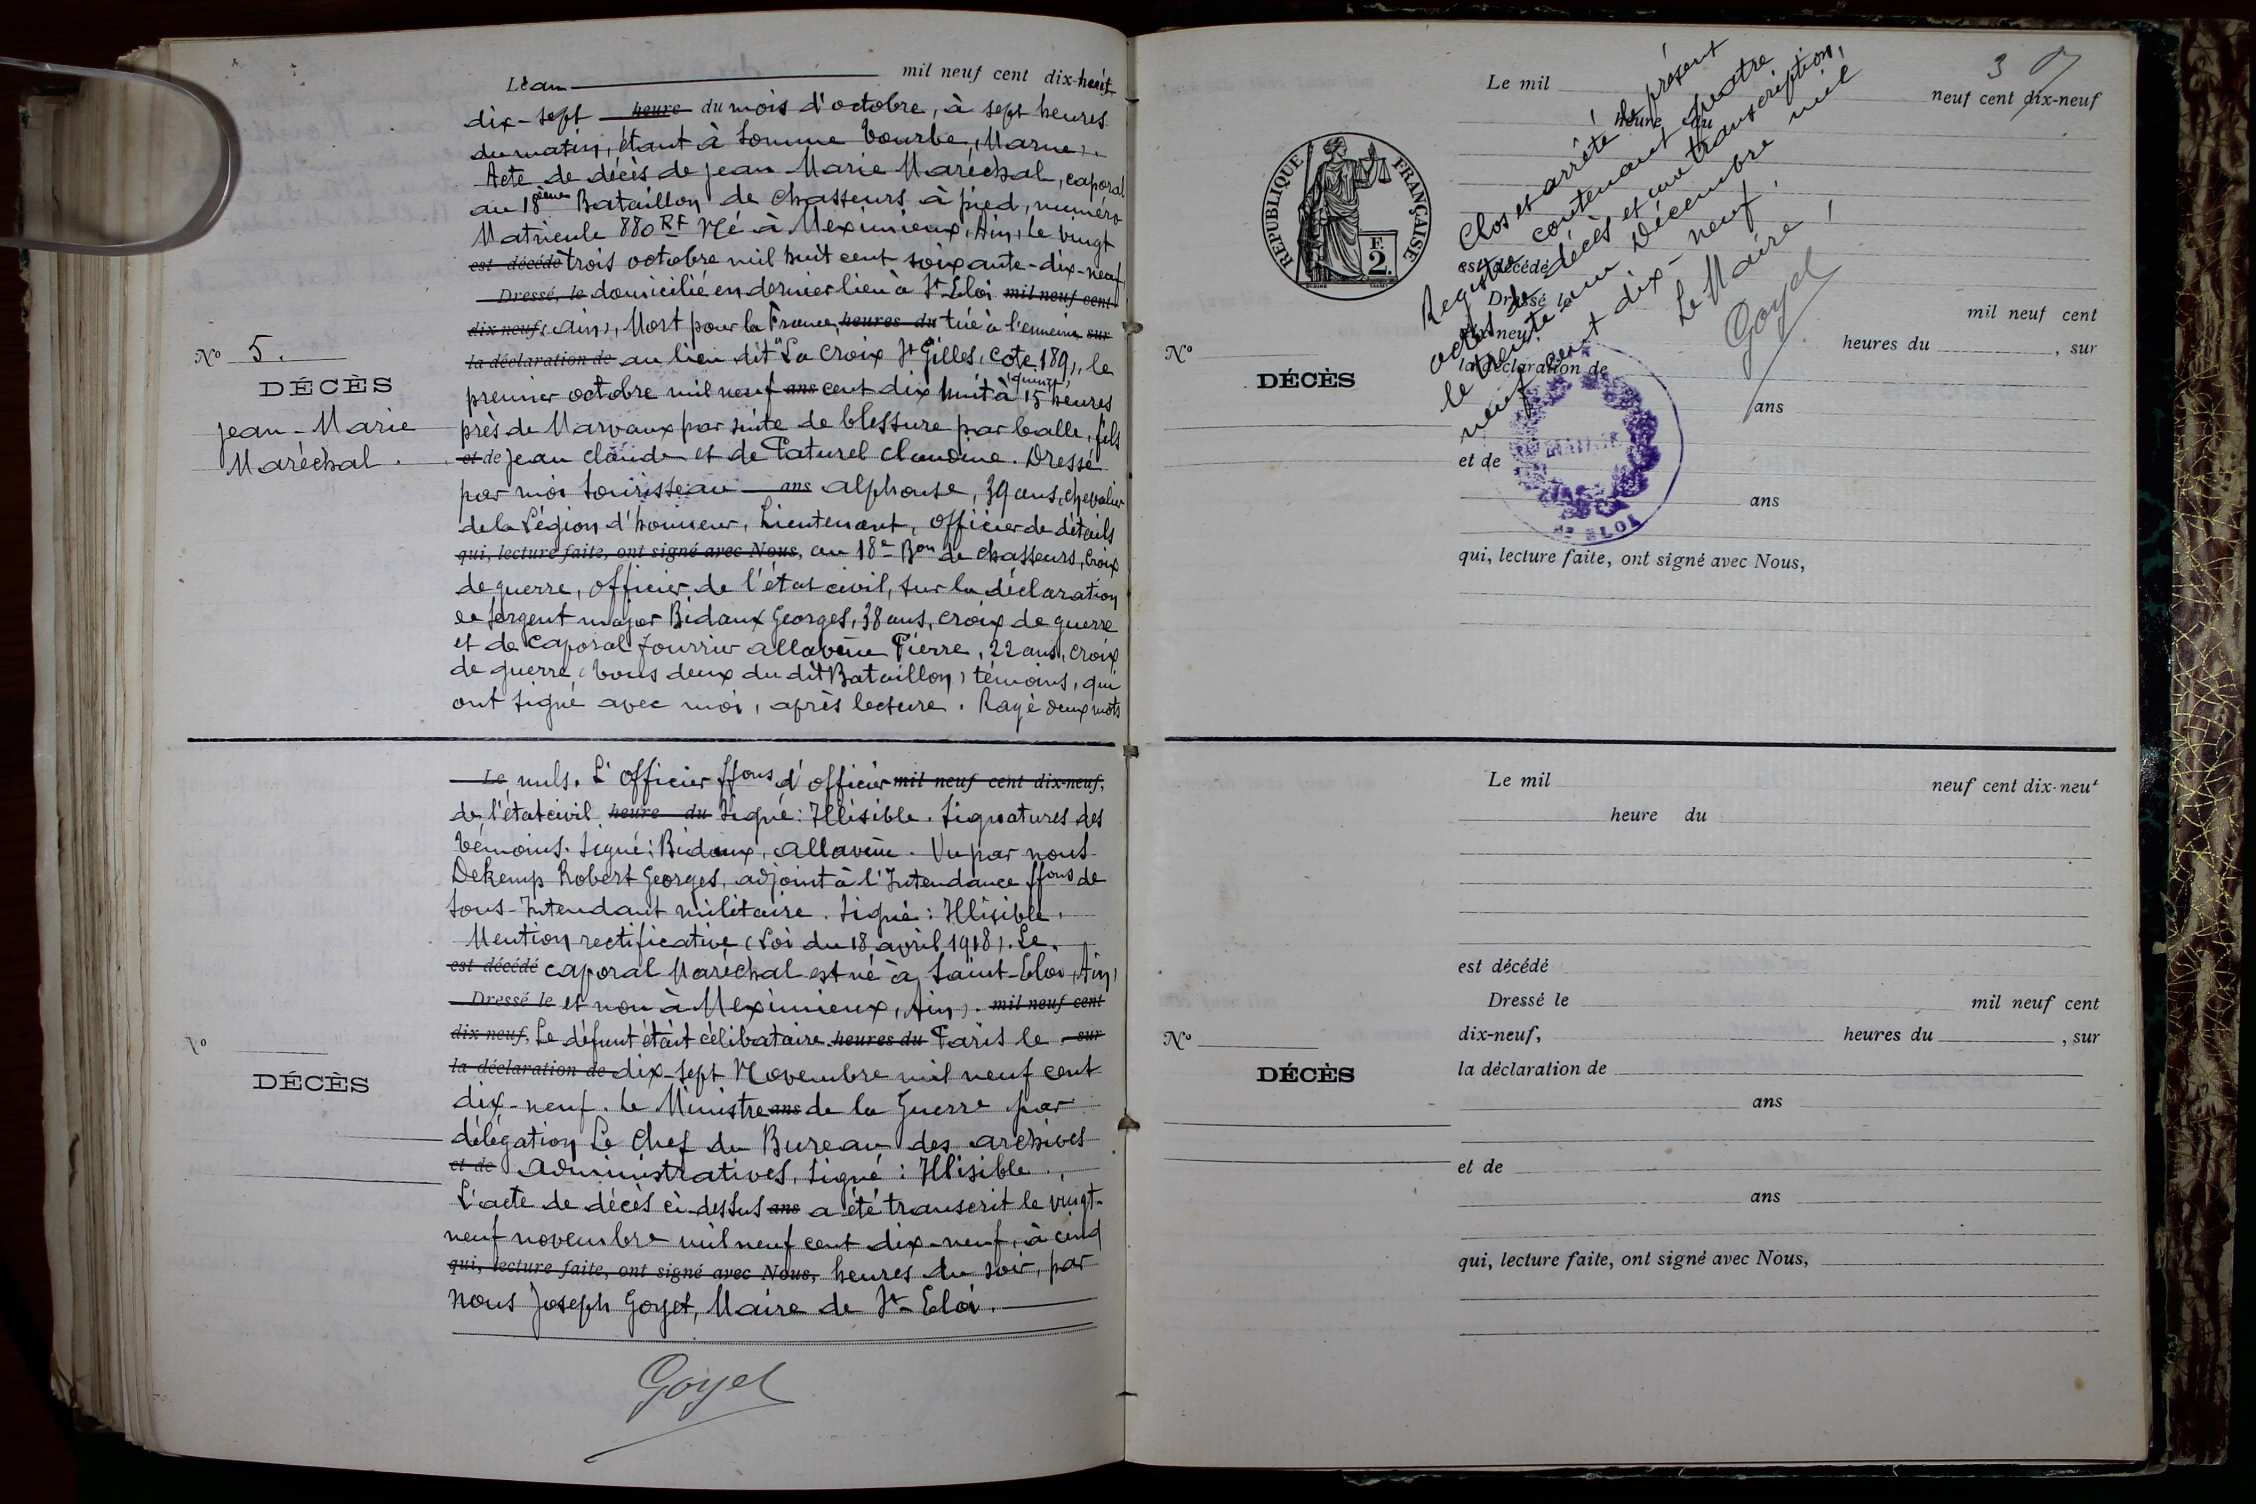 L'an mil neuf cent dix-huit
dix-sept heure du mois d'octobre, à sept heures
du matin, étant à Somme Tourbe, (Marne).
Acte de décès de Jean Marie Maréchal, caporal
au 18ème Bataillon de Chasseurs à pied, numéro
Matricule 880 RF Né à Meximieux, Ain, le vingt
est décédé trois octobre mil huit cent soixante-dix-neuf
Dressé, le domicilié en dernier lieu à St Eloi mil neuf cent
dix-neuf, (Ain), Mort pour la France, heures du tué à l'ennemi sur
la déclaration de au lieu dit "La Croix St Gilles, cote 189", le
premier octobre mil neuf ans cent dix huit à 15 (quinze) heures
près de Marvaux par suite de blessure par balle, fils
et de Jean Claude et de Paturel Claudine. Dressé
par moi Sourisseau ans Alphonse, 39 ans, chevalier
de la Légion d'honneur, Lieutenant, Officier de détails
qui, lecture faite, ont signé avec Nous, au 18e Bon de Chasseurs, Croix
de guerre, Officier de l'état civil, sur la déclaration
de Sergent major Bidaux Georges, 38 ans, croix de guerre
et de Caporal fourrier Allavène Pierre, 22 ans, croix
de guerre, (tous deux du dit Bataillon) témoins, qui
ont signé avec moi, après lecture. Rayé deux mots
N° 5.
DÉCÈS
Jean-Marie
Maréchal.
Le nuls. L'Officier ffons d'officier mil neuf cent dix-neuf,
de l'état civil heure du Signé: Illisible. Signatures des
témoins. Signé: Bidaux, Allavène. Vu par nous
Dekemp Robert Georges, adjoint à l'Intendance ffons de
Sous-Intendant militaire. Signé: Illisible.
Mention rectificative (Loi du 18 avril 1918). Le
est décédé caporal Maréchal est né à Saint-Eloi (Ain)
Dressé le et non à Meximieux, (Ain). mil neuf cent
dix-neuf, Le défunt était célibataire heures du Paris le sur
la déclaration de dix-sept Novembre mil neuf cent
dix-neuf. Le Ministre ans de la Guerre par
délégation Le Chef du Bureau des archives
et de Administratives, Signé: Illisible.
L'acte de décès ci-dessus ans a été transcrit le vingt-
neuf novembre mil neuf cent dix-neuf, à cinq
qui, lecture faite, ont signé avec Nous, heures du soir, par
nous Joseph Goyet, Maire de St-Eloi.
Goyet
N°
DÉCÈS
3
Le mil neuf cent dix-neuf
heure du
REPUBLIQUE FRANÇAISE
F.
2.
Clos et arrêté le présent
Registre contenant quatre
actes de décès et une transcription,
le trente un Décembre mil
neuf cent dix-neuf.
Le Maire,
Goyet
est décédé
Dressé le mil neuf cent
dix-neuf, heures du , sur
la déclaration de
ans
et de
ans
qui, lecture faite, ont signé avec Nous,
N°
DÉCÈS
MAIRIE
ST ELOI
Le mil neuf cent dix-neuf
heure du
est décédé
Dressé le mil neuf cent
dix-neuf, heures du , sur
la déclaration de
ans
et de
ans
qui, lecture faite, ont signé avec Nous,
N°
DÉCÈS